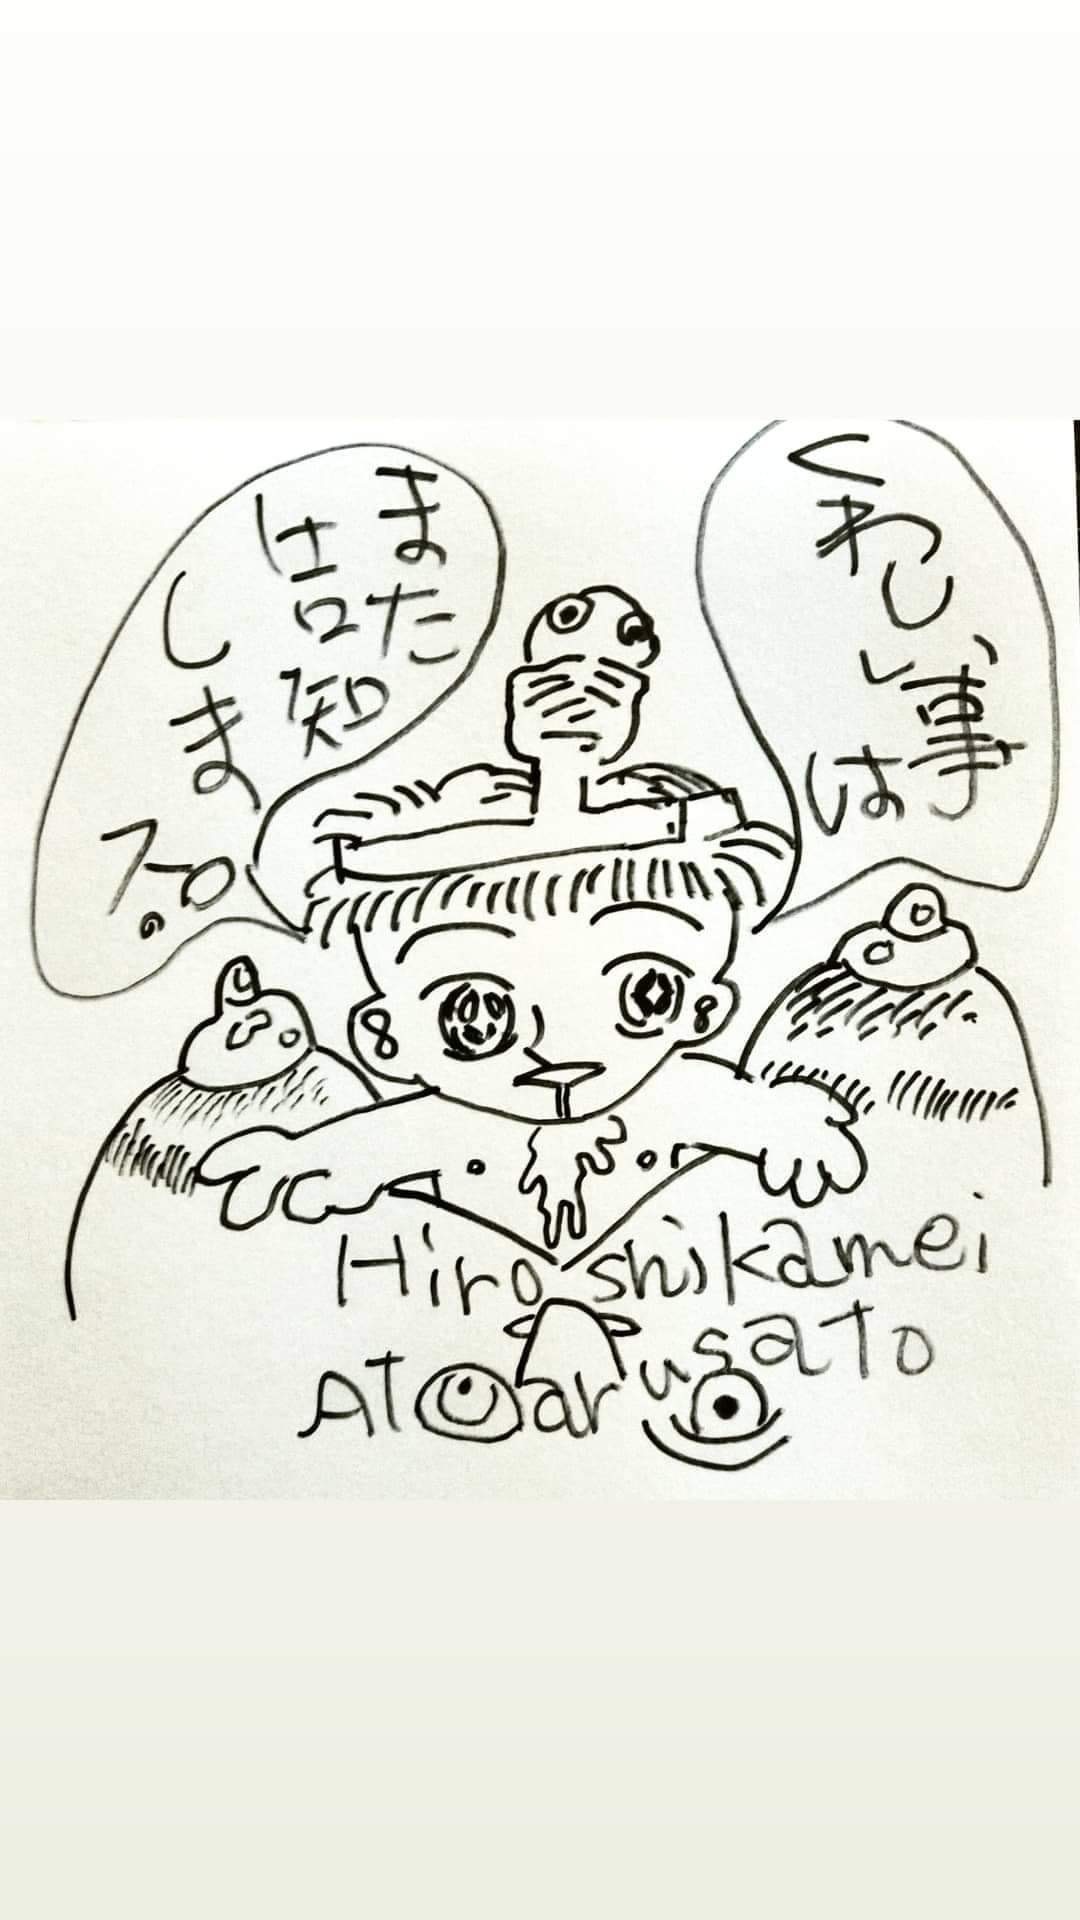 くわしい事は
また
告知
します。
Hiroshikamei
ATOarusato